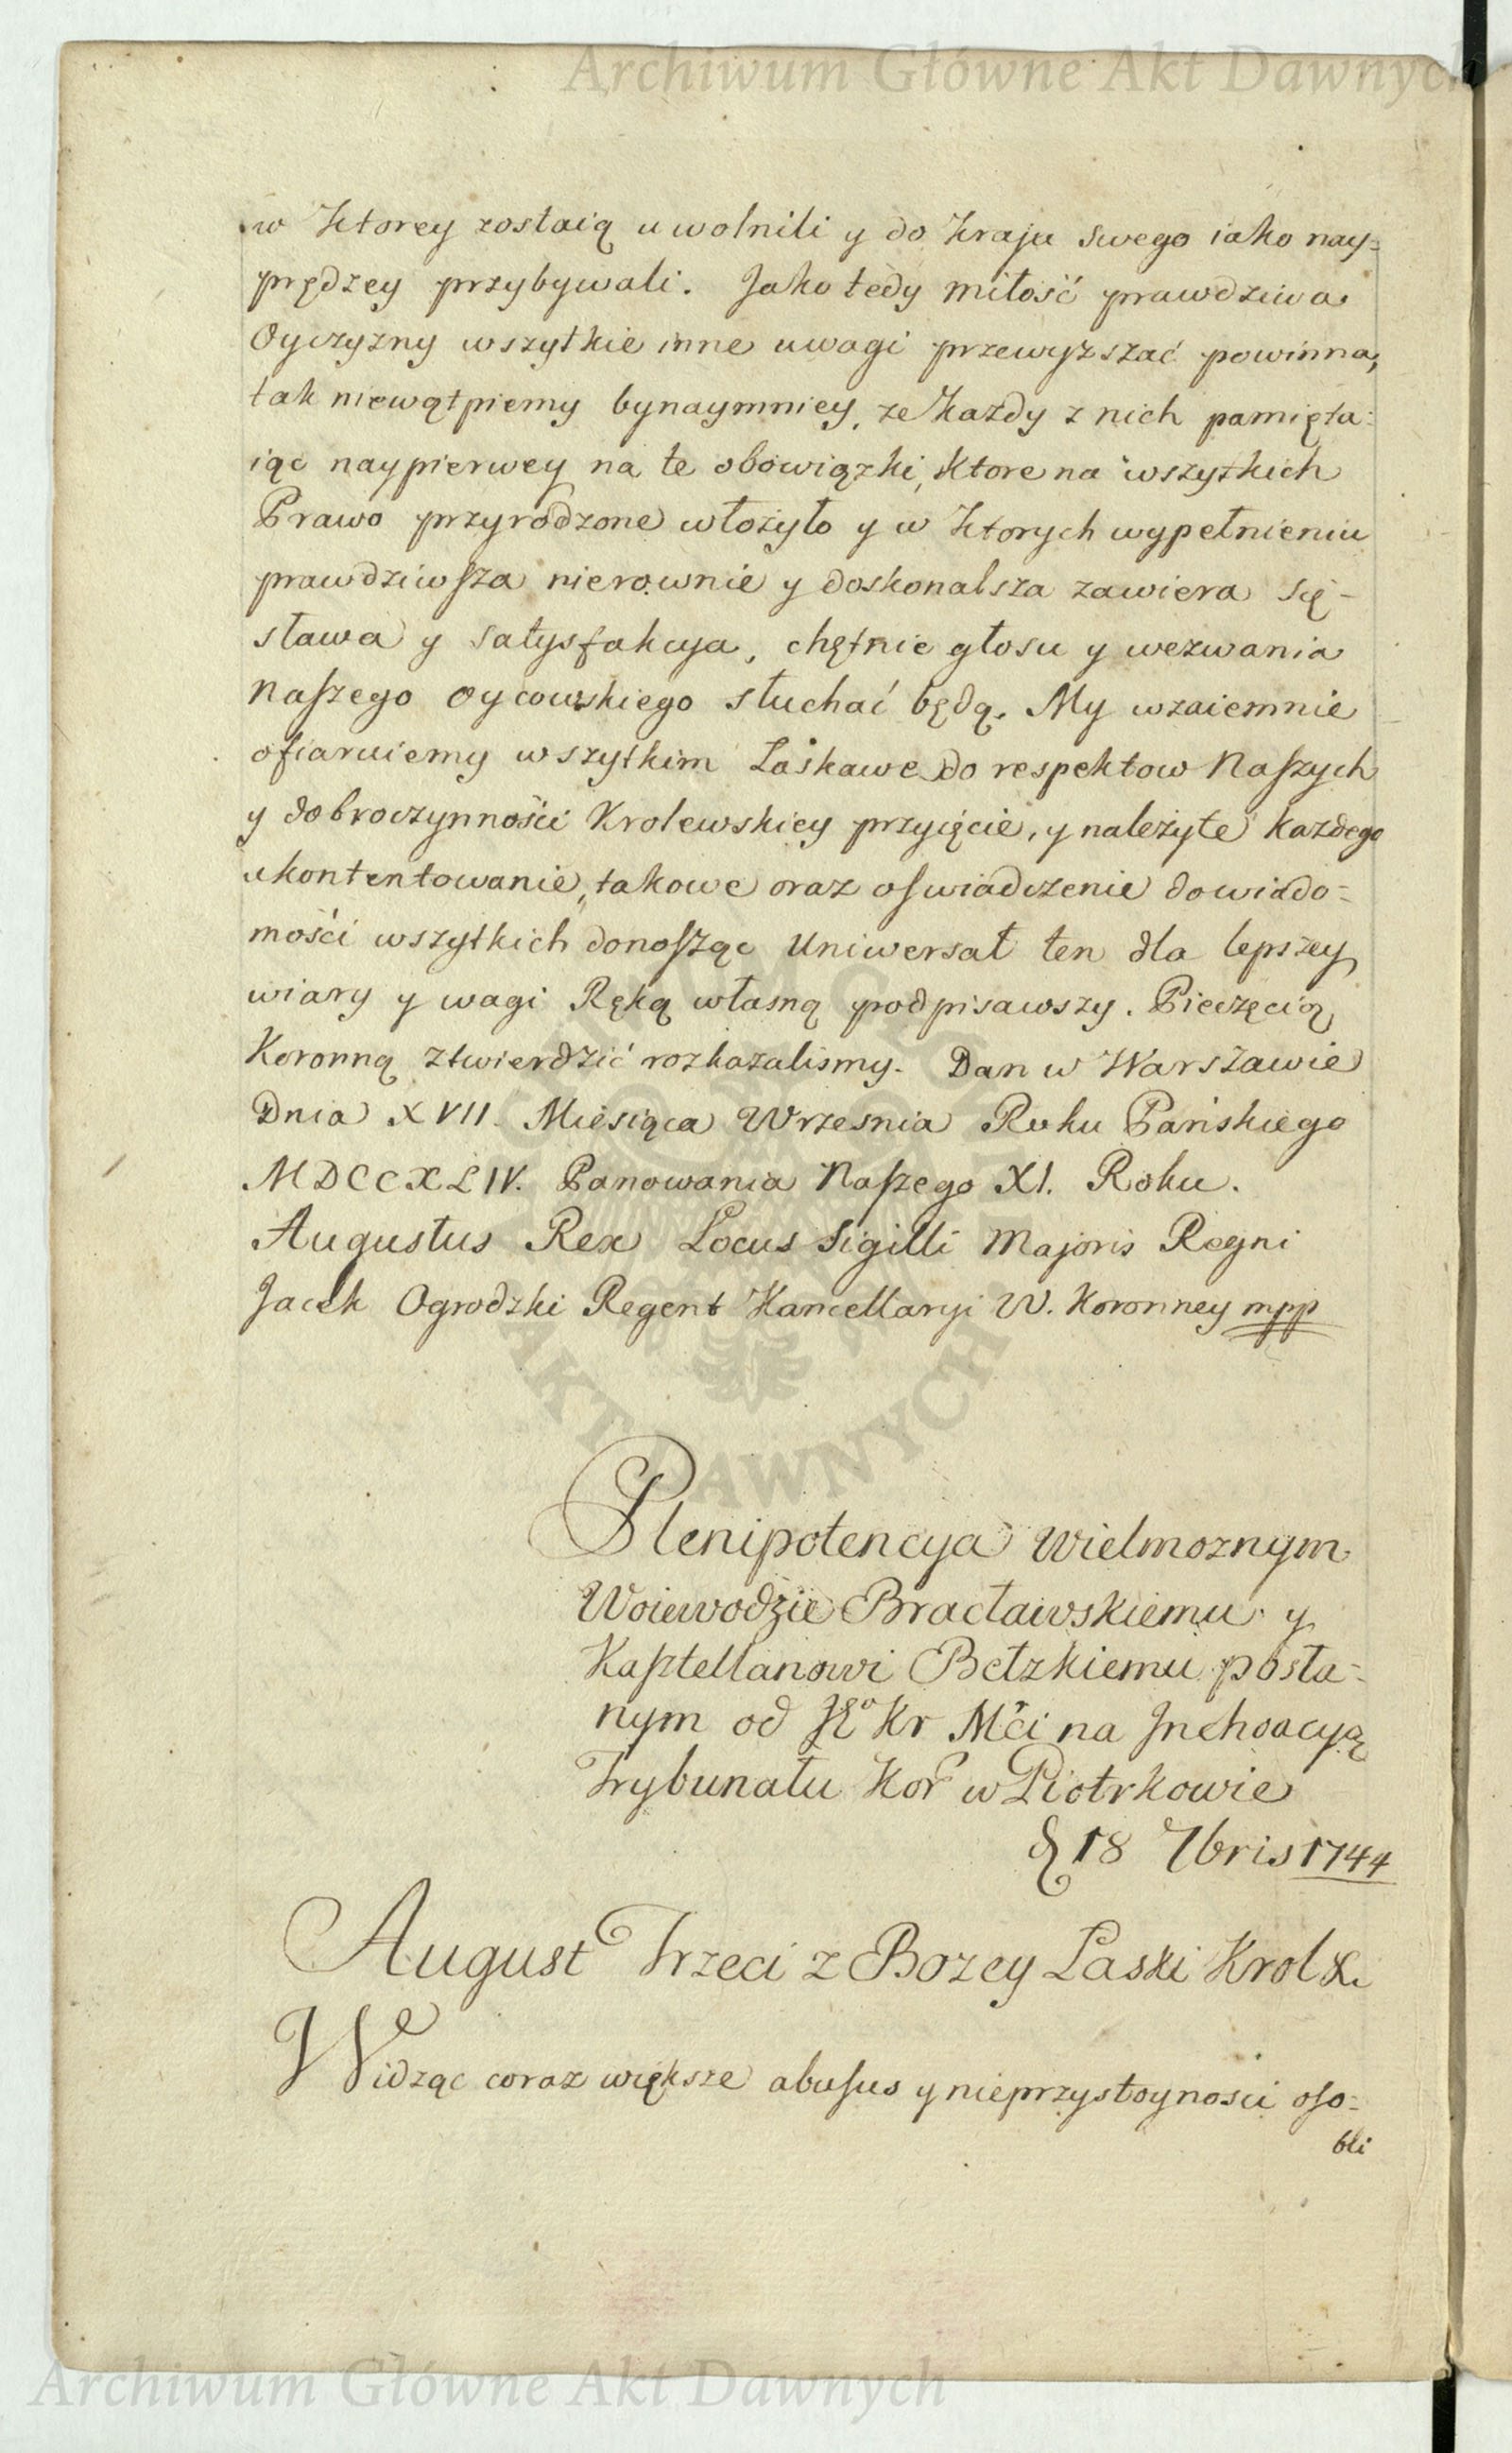 Archiwum Główne Akt Dawnych
w ktorey zostaią uwolnili y do kraju swego iako nay=
prędzey przybywali. Jako tedy miłość prawdziwa
Oyczyzny wszytkie inne uwagi przewyzszać powinna,
tak niewątpiemy bynaymniey, ze kazdy z nich pamięta=
iąc naypierwey na te obowiązki, ktore na wszytkich
Prawo przyrodzone włozyło y w ktorych wypełnieniu
prawdziwsza nierownie y doskonalsza zawiera się
sława y satysfakcya, chętnie głosu y wezwania
Naszego Oycowskiego słuchać będą. My wzaiemnie
ofiaruiemy wszytkim Łaskawe do respektow Naszych
y dobroczynności Krolewskiey przyięcie, y nalezyte kazdego
ukontentowanie, takowe oraz oswiadczenie do wiado=
mości wszytkich donosząc Uniwersał ten dla lepszey
wiary y wagi Ręką własną podpisawszy. Pieczęcią
Koronną ztwierdzić rozkazalismy. Dan w Warszawie
Dnia XVII. Miesiąca Wrzesnia Roku Pańskiego
MDCCXLIV. Panowania Naszego XI. Roku.
Augustus Rex Locus Sigilli Majoris Regni
Jacek Ogrodzki Regent Kancellaryi W. Koronney mpp
Plenipotencya Wielmoznym
Woiewodzie Bracławskiemu y
Kasztellanowi Bełzkiemu posła=
nym od JKo Kr Mći na Inchoacyą
Trybunału Kor w Piotrkowie
d 18 7bris 1744
August Trzeci z Bozey Łaski Krol &.
Widząc coraz większe abusus y nieprzystoynosci oso=
bli
Archiwum Główne Akt Dawnych
AKT DAWNYCH